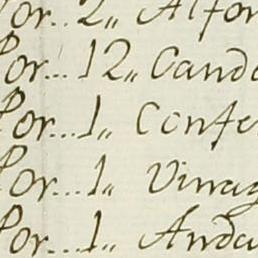 Por... 2,, Alfor
Por... 12,, Cand
Por... 1,, Confe
Por... 1,, Vinag
Por... 1,, Anda